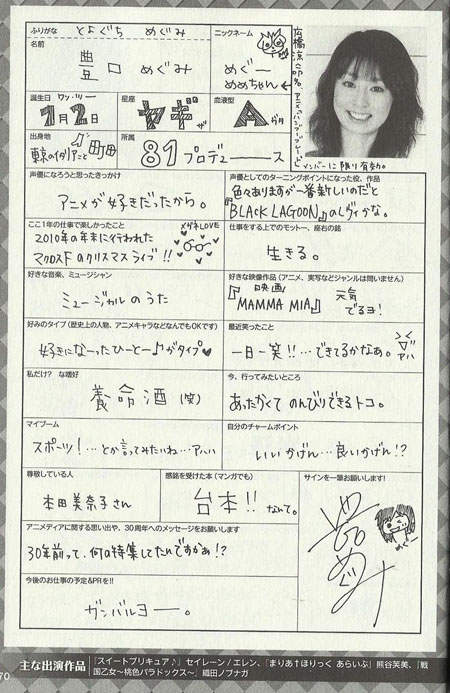 ふりがな
とよぐち めぐみ
名前
豊口 めぐみ
ニックネーム
めぐー
めめちゃん←
広橋涼
メンバーに限り有効。
誕生日
ワン・ツー
1月2日
星座
ヤギ座
血液型
Aガタ
出身地
東京のイダ
町田
所属
81プロデュース
声優になろうと思ったきっかけ
アニメが好きだったから。
声優としてのターニングポイントになった役、作品
色々ありますが一番新しいのだと
『BLACK LAGOON』のレヴィかな。
ここ1年の仕事で楽しかったこと
メガネLOVE
2010年の年末に行われた
マクロスFのクリスマスライブ!!
仕事をする上でのモットー、座右の銘
生きる。
好きな音楽、ミュージシャン
ミュージカルのうた
好きな映像作品(アニメ、実写などジャンルは問いません)
『映画
MAMMA MIA』
元気
でるヨ!
好みのタイプ(歴史上の人物、アニメキャラなどなんでもOKです)
好きになーったひーとー♪がタイプ♥
最近笑ったこと
一日一笑!!…できてるかなぁ。
私だけ?な嗜好
養命酒(笑)
今、行ってみたいところ
あったかくてのんびりできるトコ。
マイブーム
スポーツ!…とか言ってみたいね…アハハ
自分のチャームポイント
いいかげん…良いかげん!?
尊敬している人
本田美奈子さん
感銘を受けた本(マンガでも)
台本!!なんて。
サインを一筆お願いします!
めぐー
アニメディアに関する思い出や、30周年へのメッセージをお願いします
30年前って、何の特集してたんですかぁ!?
今後のお仕事の予定&PRを!!
ガンバルヨー。
主な出演作品
『スイートプリキュア♪』セイレーン/エレン、『まりあ†ほりっく あらいぶ』熊谷芙美、『戦
国乙女~桃色パラドックス~』織田ノブナガ
70